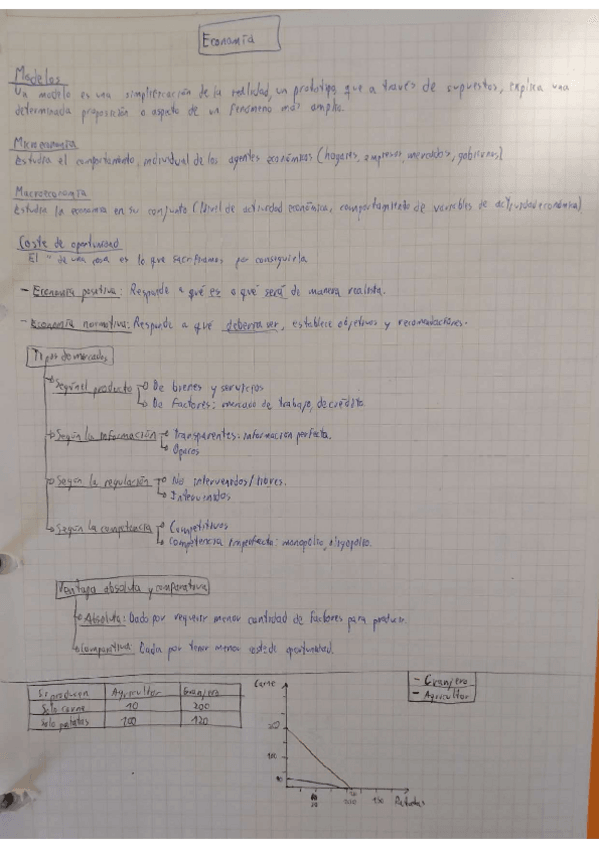 Economía
Modelos
Un modelo es una simplificación de la realidad, un prototipo que a través de supuestos, explica una
determinada proposición o aspecto de un fenómeno más amplio.
Microeconomía
Estudia el comportamiento, individual de los agentes económicos (hogares, empresas, mercados, gobiernos)
Macroeconomía
Estudia la economía en su conjunto (Nivel de actividad económica, comportamiento de variables de actividad económica)
Coste de oportunidad
El " de una cosa es lo que sacrificamos por conseguirla.
- Economía positiva: Responde a qué es o qué será de manera realista.
- Economía normativa: Responde a qué debería ser, establece objetivos y recomendaciones.
Tipos de mercados
Según el producto De bienes y servicios
De Factores: mercado de trabajo, de crédito
Según la información Transparentes: información perfecta.
Opacos
Según la regulación No intervenidos/libres.
Intervenidos
Según la competencia Competitivos
Competencia imperfecta: monopolio, oligopolio.
Ventaja absoluta y comparativa
Absoluta: Dado por requerir menor cantidad de factores para producir.
Comparativa: Dada por tener menor coste de oportunidad.
Si producen Agricultor Granjero
Solo carne 10 200
Solo patatas 100 120
Carne
- Granjero
- Agricultor
200
100
10
100 150 Patatas